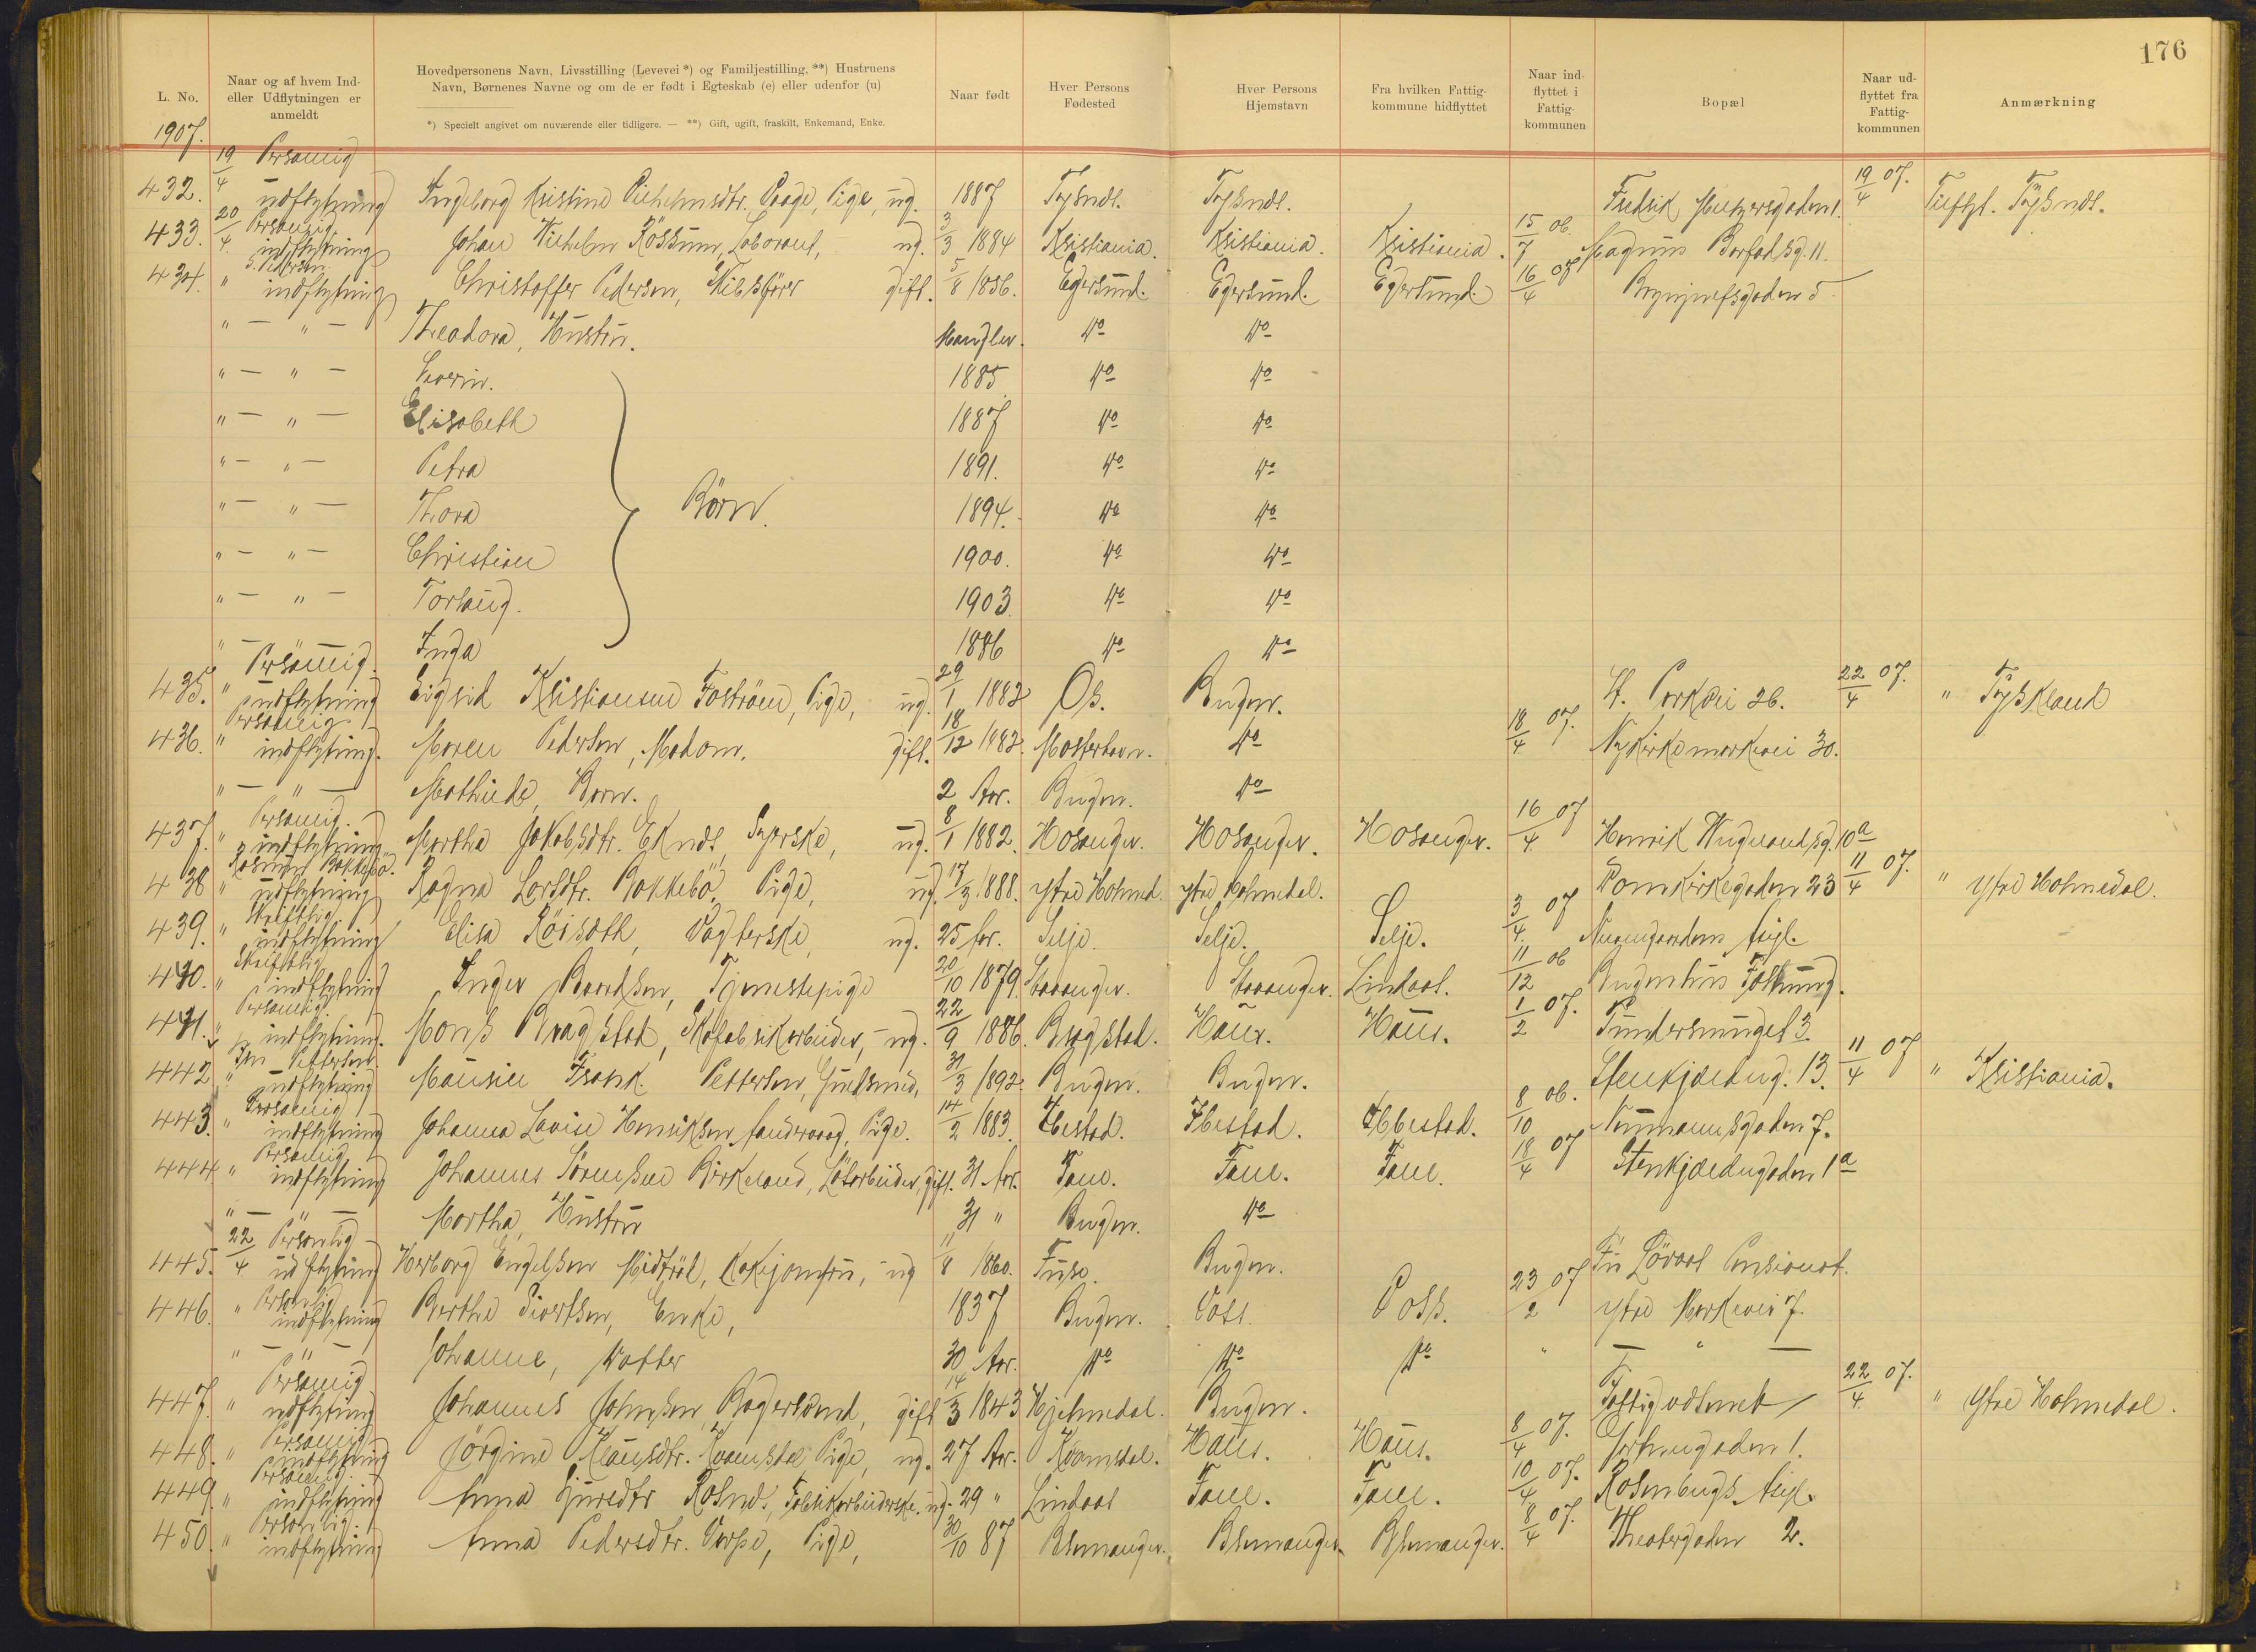 176
L. No.
Naar og af hvem Ind- eller Udflytningen er anmeldt
Hovedpersonens Navn, Livsstilling (Levevei *) og Familjestilling, **) Hustruens Navn, Børnenes Navne og om de er født i Egteskab (e) eller udenfor (u)
*) Specielt angivet om nuværende eller tidligere. — **) Gift, ugift, fraskilt, Enkemand, Enke.
Naar født
Hver Persons Fødested
Hver Persons Hjemstavn
Fra hvilken Fattig- kommune hidflyttet
Naar ind- flyttet i Fattig- kommunen
Bopæl
Naar ud- flyttet fra Fattig- kommunen
Anmærkning
1907.
432. 19/4 Personlig udflytning Ingeborg Kristine Vilhelmsdtr. Pige, ug. 1887 Tyskndl. Tyskndl. Fredrik Meltzersgaden 1. 19/4 07. Tilflyt. Tyskndl.
433. 20/4. Personlig indflytning Johan Wilhelm Rössum, Laborant, ug. 3/3 1884 Kristiania. Kristiania. Kristiania. 15/7 06. Magnus Barfodsg. 11.
434. " S. Pedersen indflytning Christoffer Pedersen, Skibsförer gift. 5/8 1856. Egersund. Egersund. Egersund. 16/4 07 Brynjulfsgaden 5
" — " — Theodora, Hustru. Mangler. Do Do
" — " — Severin. 1885 Do Do
" — " — Elisabeth 1887 Do Do
" — " — Petra 1891. Do Do
" — " — Thora Börn. 1894. Do Do
" — " — Christian 1900. Do Do
" — " — Torlaug. 1903 Do Do
" — Inga 1886 Do Do
435. " Personlig udflytning Sigrid Kristiansen Foström, Pige, ug. 29/1 1882 Os. Bergen. St. Parkvei 26. 22/4 07. " Tyskland
436. " Personlig indflytning. Maren Pedersen, Madam. gift. 18/12 1882. Mosterhavn. Do 18/4 07. Nykirkemarkvei 30.
" — " — Mathilde, Barn. 2 Aar. Bergen. Do
437. " Personlig. indflytning Martha Jakobsdtr. Eknes, Syerske, ug. 8/1 1882. Hosanger. Hosanger. Hosanger. 16/4 07 Henrik Wergelandsg. 10a
438 " Rasmus Bakkebö. udflytning Ragna Larsdtr. Bakkebö, Pige, ug. 17/3. 1888. ytre Holmed. ytre Holmedal. Domkirkegaden 23 11/4 07. " Ytre Holmedal.
439. " Skriftlig indflytning Elisa Röiseth, Vagterske, ug. 25 Aar. Selje. Selje. Selje. 3/4. 07 Neevengaardens Asyl.
440. " Skriftlig indflytning Inger Baardsen, Tjenestepige 20/10 1879. Stavanger. Stavanger. Lindaas. 11/12 06 Bergenhus Fæstning.
441. " Personlig. indflytning. Mons Bragstad, Skofabrikarbeider, ug. 22/9 1886. Bragstad. Haus. Haus. 1/2 07. Tundersmuget 3.
442 " Pettersen. udflytning Mauritz Frank. Pettersen, Guldsmed, 31/3 1892. Bergen. Bergen. Stenkjældrg. 13. 11/4 07 " Kristiania.
443. " Personlig indflytning Johanna Lovise Henriksen Pige. 14/2 1883. Ibestad. Ibestad. Ibestad. 8/10 06. Neumannsgaden 7.
444 " Personlig indflytning Johannes Sörensen Birkeland, Lösarbeider, gift. 31 Aar. Fane. Fane. Fane. 18/4 07 Stenkjældergaden 1a
" — " — Martha, Hustru 31 " Bergen. Do
445. 22/4 Personlig udflytning Herborg Engelsen Midtröd, Kokejomfru, ug 11/8 1860. Fuse. Bergen. Frú Lövaas Pensionat.
446. " Personlig indflytning Berthe Sivertsen, Enke, 1837 Bergen. Voss. Voss. 23/2 07 ytre Markevei 7.
" — " — Johanne, Datter 30 Aar. Do Do Do " — " —
447. " Personlig udflytning Johannes Johnsen gift 14/3 1843 Hjelmedal. Bergen. Fattigvæsenet 22/4. 07. " Ytre Holmedal.
448. " Personlig indflytning Jörgine Klausdtr. Kvamsdal Pige, ug. 27 Aar. Kvamsdal. Haus. Haus. 8/4 07. 1.
449. " Personlig. indflytning Anna Sjursdtr Rosnes, Fabrikarbeiderske. ug. 29 " Lindaas Fane. Fane. 10/4 07. Rosenbergs Asyl.
450. " Personlig. indflytning Anna Pedersdtr. Varpe, Pige, 30/10 87 Bremanger. Bremanger. Bremanger. 8/4 07. Theatergaden 2.